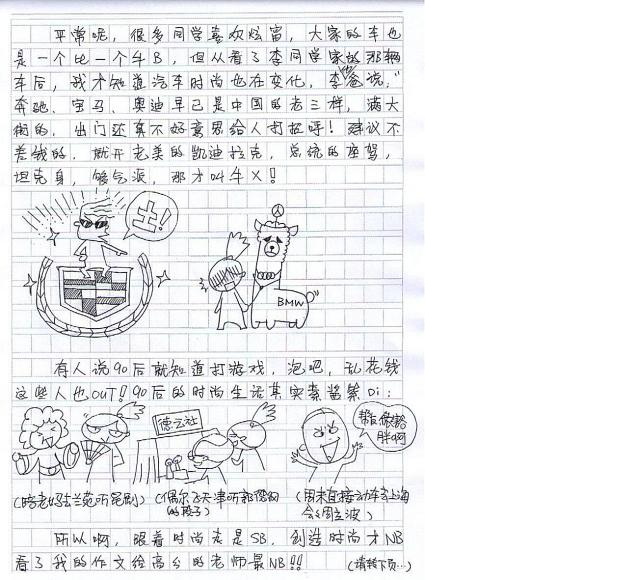 平常呢，很多同学喜欢炫富，大家的车也
是一个比一个牛B，但从看了李同学家的那辆
车后，我才知道汽车时尚也在变化，李爸说，"
奔驰、宝马、奥迪早已是中国的老三样，满大
街的，出门还真不好意思给人打招呼！建议不
差钱的，就开老美的凯迪拉克，总统的座驾，
坦克身，够气派，那才叫牛X！
土！
人
BMW
有人说90后就知道打游戏，泡吧，乱花钱
这些人也OUT！90后的时尚生活其实素酱紫Di：
德云社
帮我做
胖啊
(陪老妈去兰苑听昆剧)
(偶尔飞天津听郭德纲
的段子)
(周末直接动车去上海
会会周立波)
所以啊，跟着时尚走是SB，创造时尚才NB
看了我的作文给高分的老师最NB!!
(请转下页…)